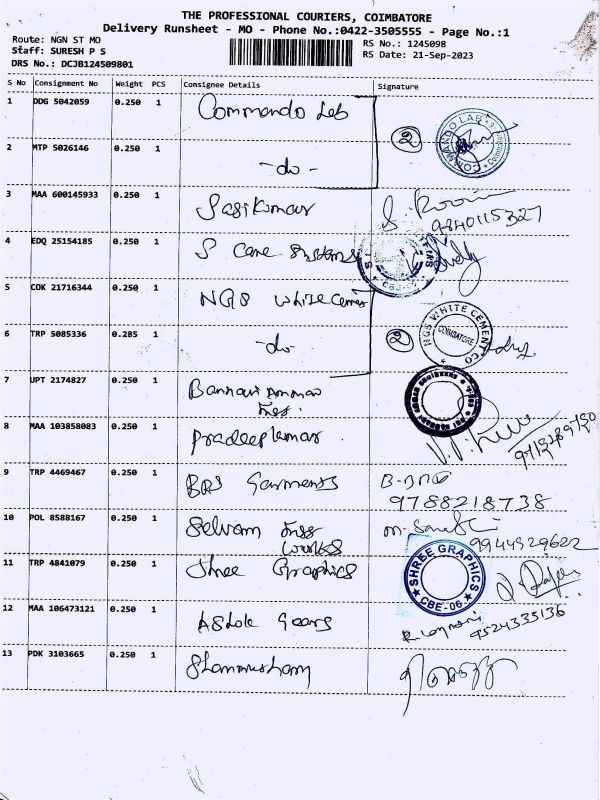 THE PROFESSIONAL COURIERS, COIMBATORE
Delivery Runsheet - MO - Phone No.:0422-3505555 - Page No.:1
Route: NGN ST MO
Staff: SURESH P S
DRS No.: DCJB124509801
RS No.: 1245098
RS Date: 21-Sep-2023
S No Consignment No Weight PCS Consignee Details Signature
1 DDG 5042059 0.250 1 Commando Lab 2 COMMANDO LAB
2 MTP 5026146 0.250 1 -do-
3 MAA 600145933 0.250 1 Sasikumar 9840115327
4 EDQ 25154185 0.250 1 S Cane Systems
5 COK 21716344 0.250 1 NGS White Cement
6 TRP 5085336 0.285 1 -do- 2 NGS WHITE CEMENT CO COIMBATORE
7 UPT 2174827 0.250 1 Bannari Amman
8 MAA 103858083 0.250 1 Pradeepkumar
9 TRP 4469467 0.250 1 BRS Garments
9788218738
10 POL 8588167 0.250 1 Selvam
works 9944929622
11 TRP 4841079 0.250 1 Shree Graphics SHREE GRAPHICS CBE-06
12 MAA 106473121 0.250 1 Ashok Gears 9524335136
13 PDK 3103665 0.250 1